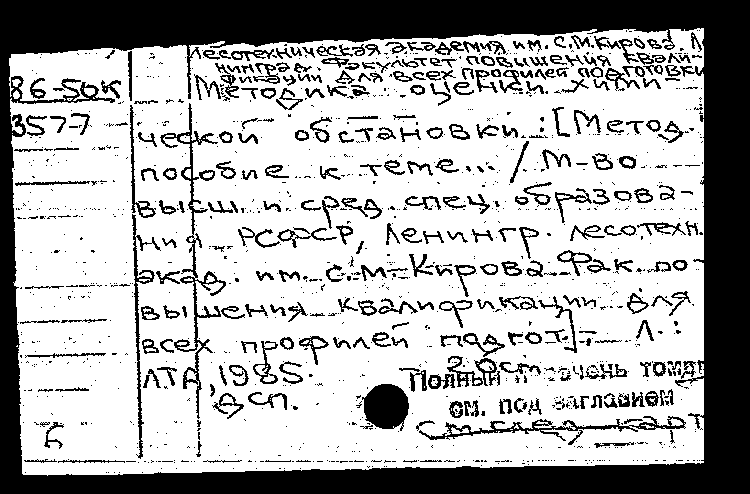 Лесотехническая академия им. С.М.Кирова. Ле-
нинград. Факультет повышения квали-
фикации для всех профилей подготовки
86-50К
Методика оценки хими-
3577
ческой обстановки : [Метод.
пособие к теме... / М-во
высш. и сред. спец. образова-
ния РСФСР, Ленингр. лесотехн.
акад. им. С.М. Кирова Фак. по-
вышения квалификации для
всех профилей подгот.]. - Л. :
ЛТА, 1985. - 20 см
Полный перечень томов
ДСП.
см. под заглавием
См. след. карт
Б